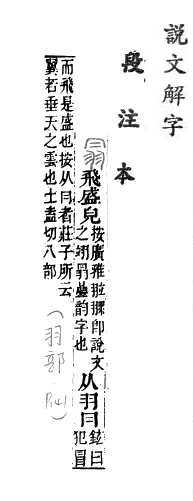 說文解字
段注本
飛盛皃
按廣雅卽說文
之疊韵字也
从羽冃
鉉曰
犯冒
而飛是盛也按从冃者莊子所云
翼若垂天之雲也土盍切八部
(羽部)